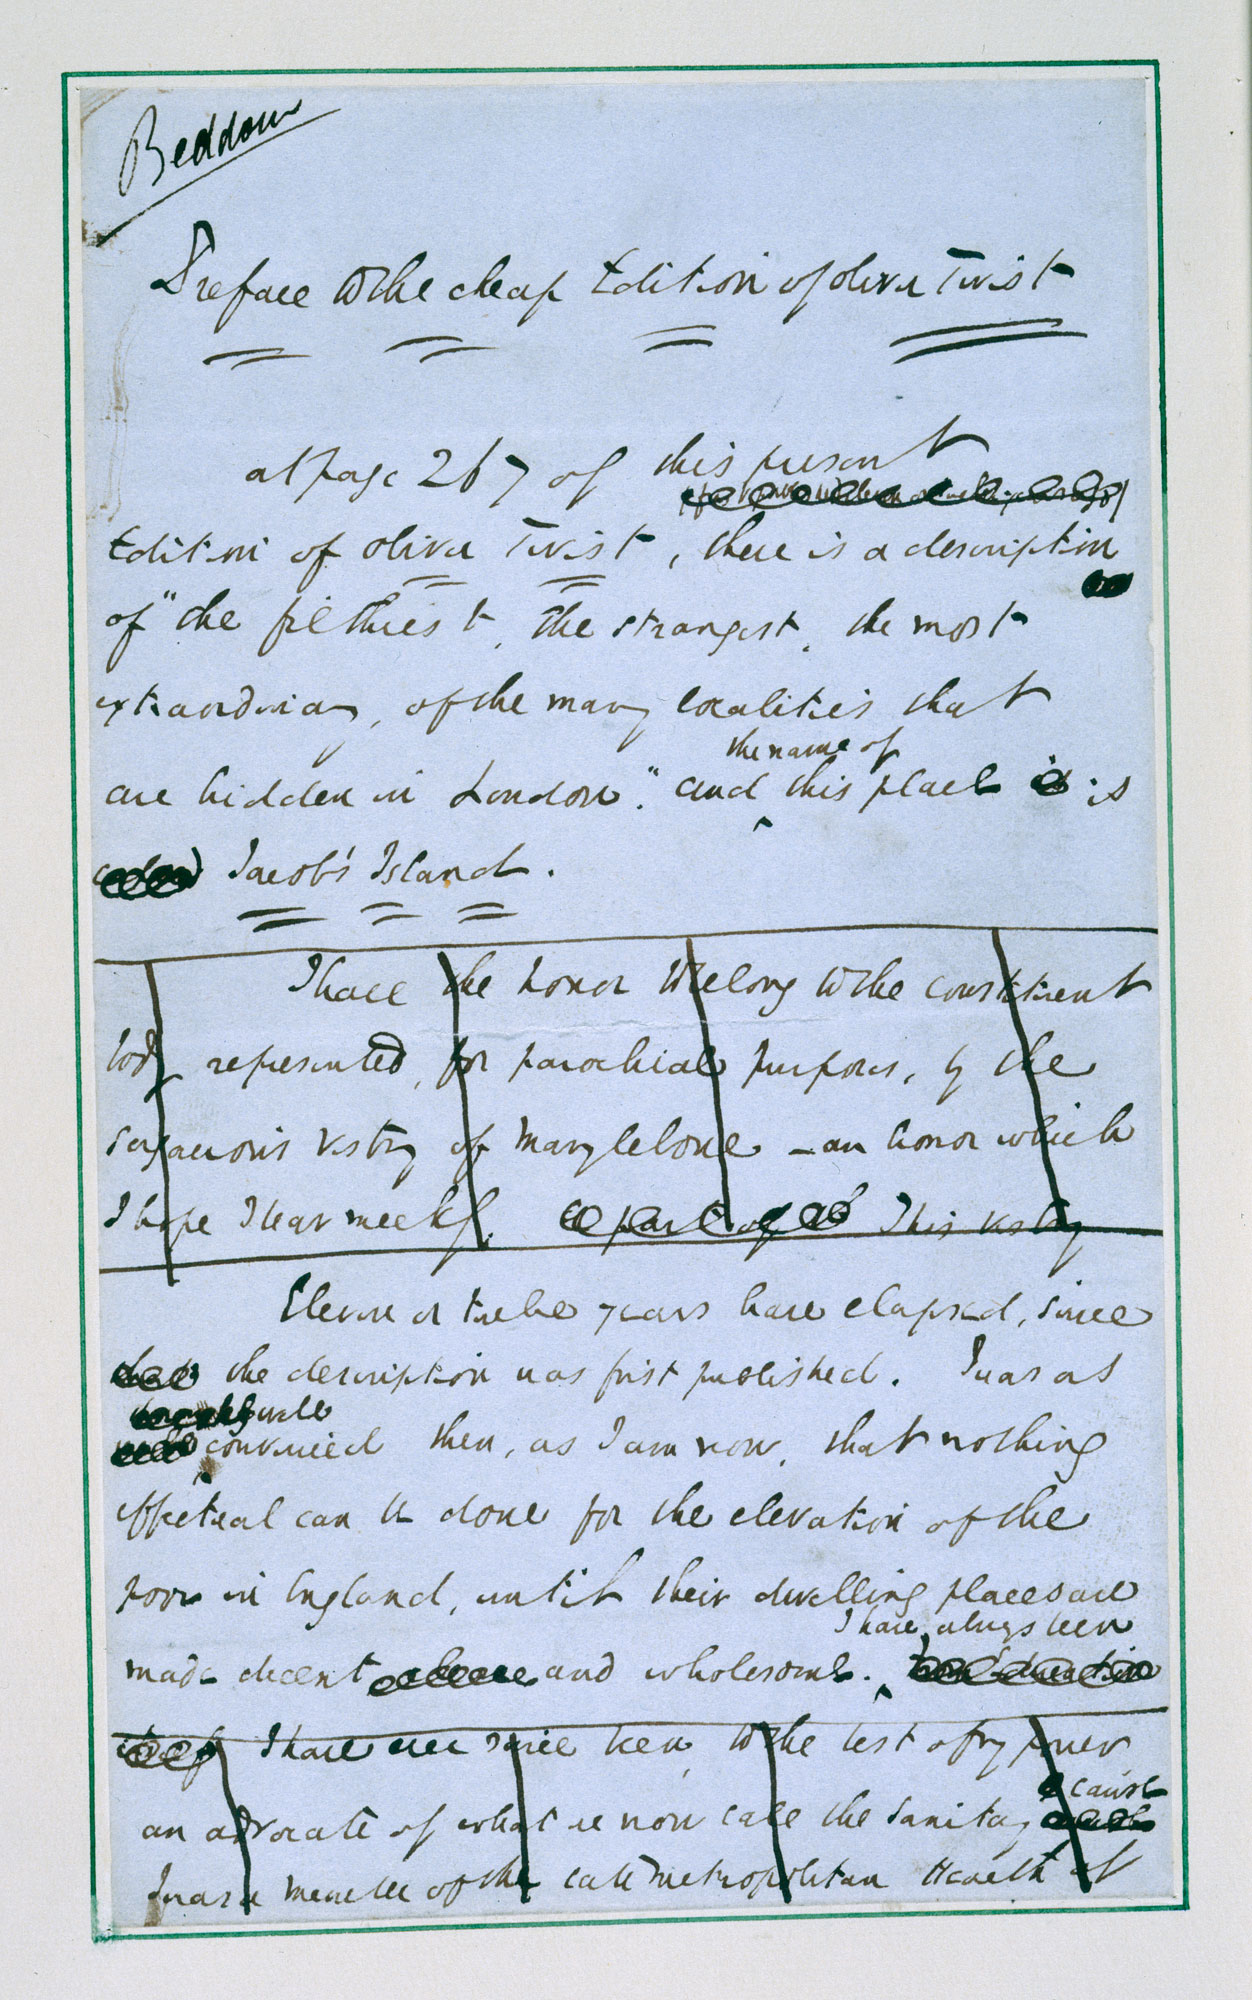 Beddom
Preface to the cheap Edition of Oliver Twist
At page 267 of this present
Edition of Oliver Twist, there is a description
of "the filthiest, the strangest, the most
extraordinary, of the many localities that
the name of
are hidden in London." And this place is
Jacob's Island.
I have the honor to belong to the constituent
body represented, for parochial purposes, by the
sagacious Vestry of Marylebone – an honor which
I hope I bear meekly. part of This Vestry
Eleven or twelve years have elapsed, since
the description was first published. I was as
well
convinced then, as I am now, that nothing
effectual can be done for the elevation of the
poor in England, until their dwelling places are
I have always been
made decent and wholesome.
I have ever since been, to the best of my power
cause
an advocate of what we now call the Sanitary
I was a member of the late Metropolitan Health of